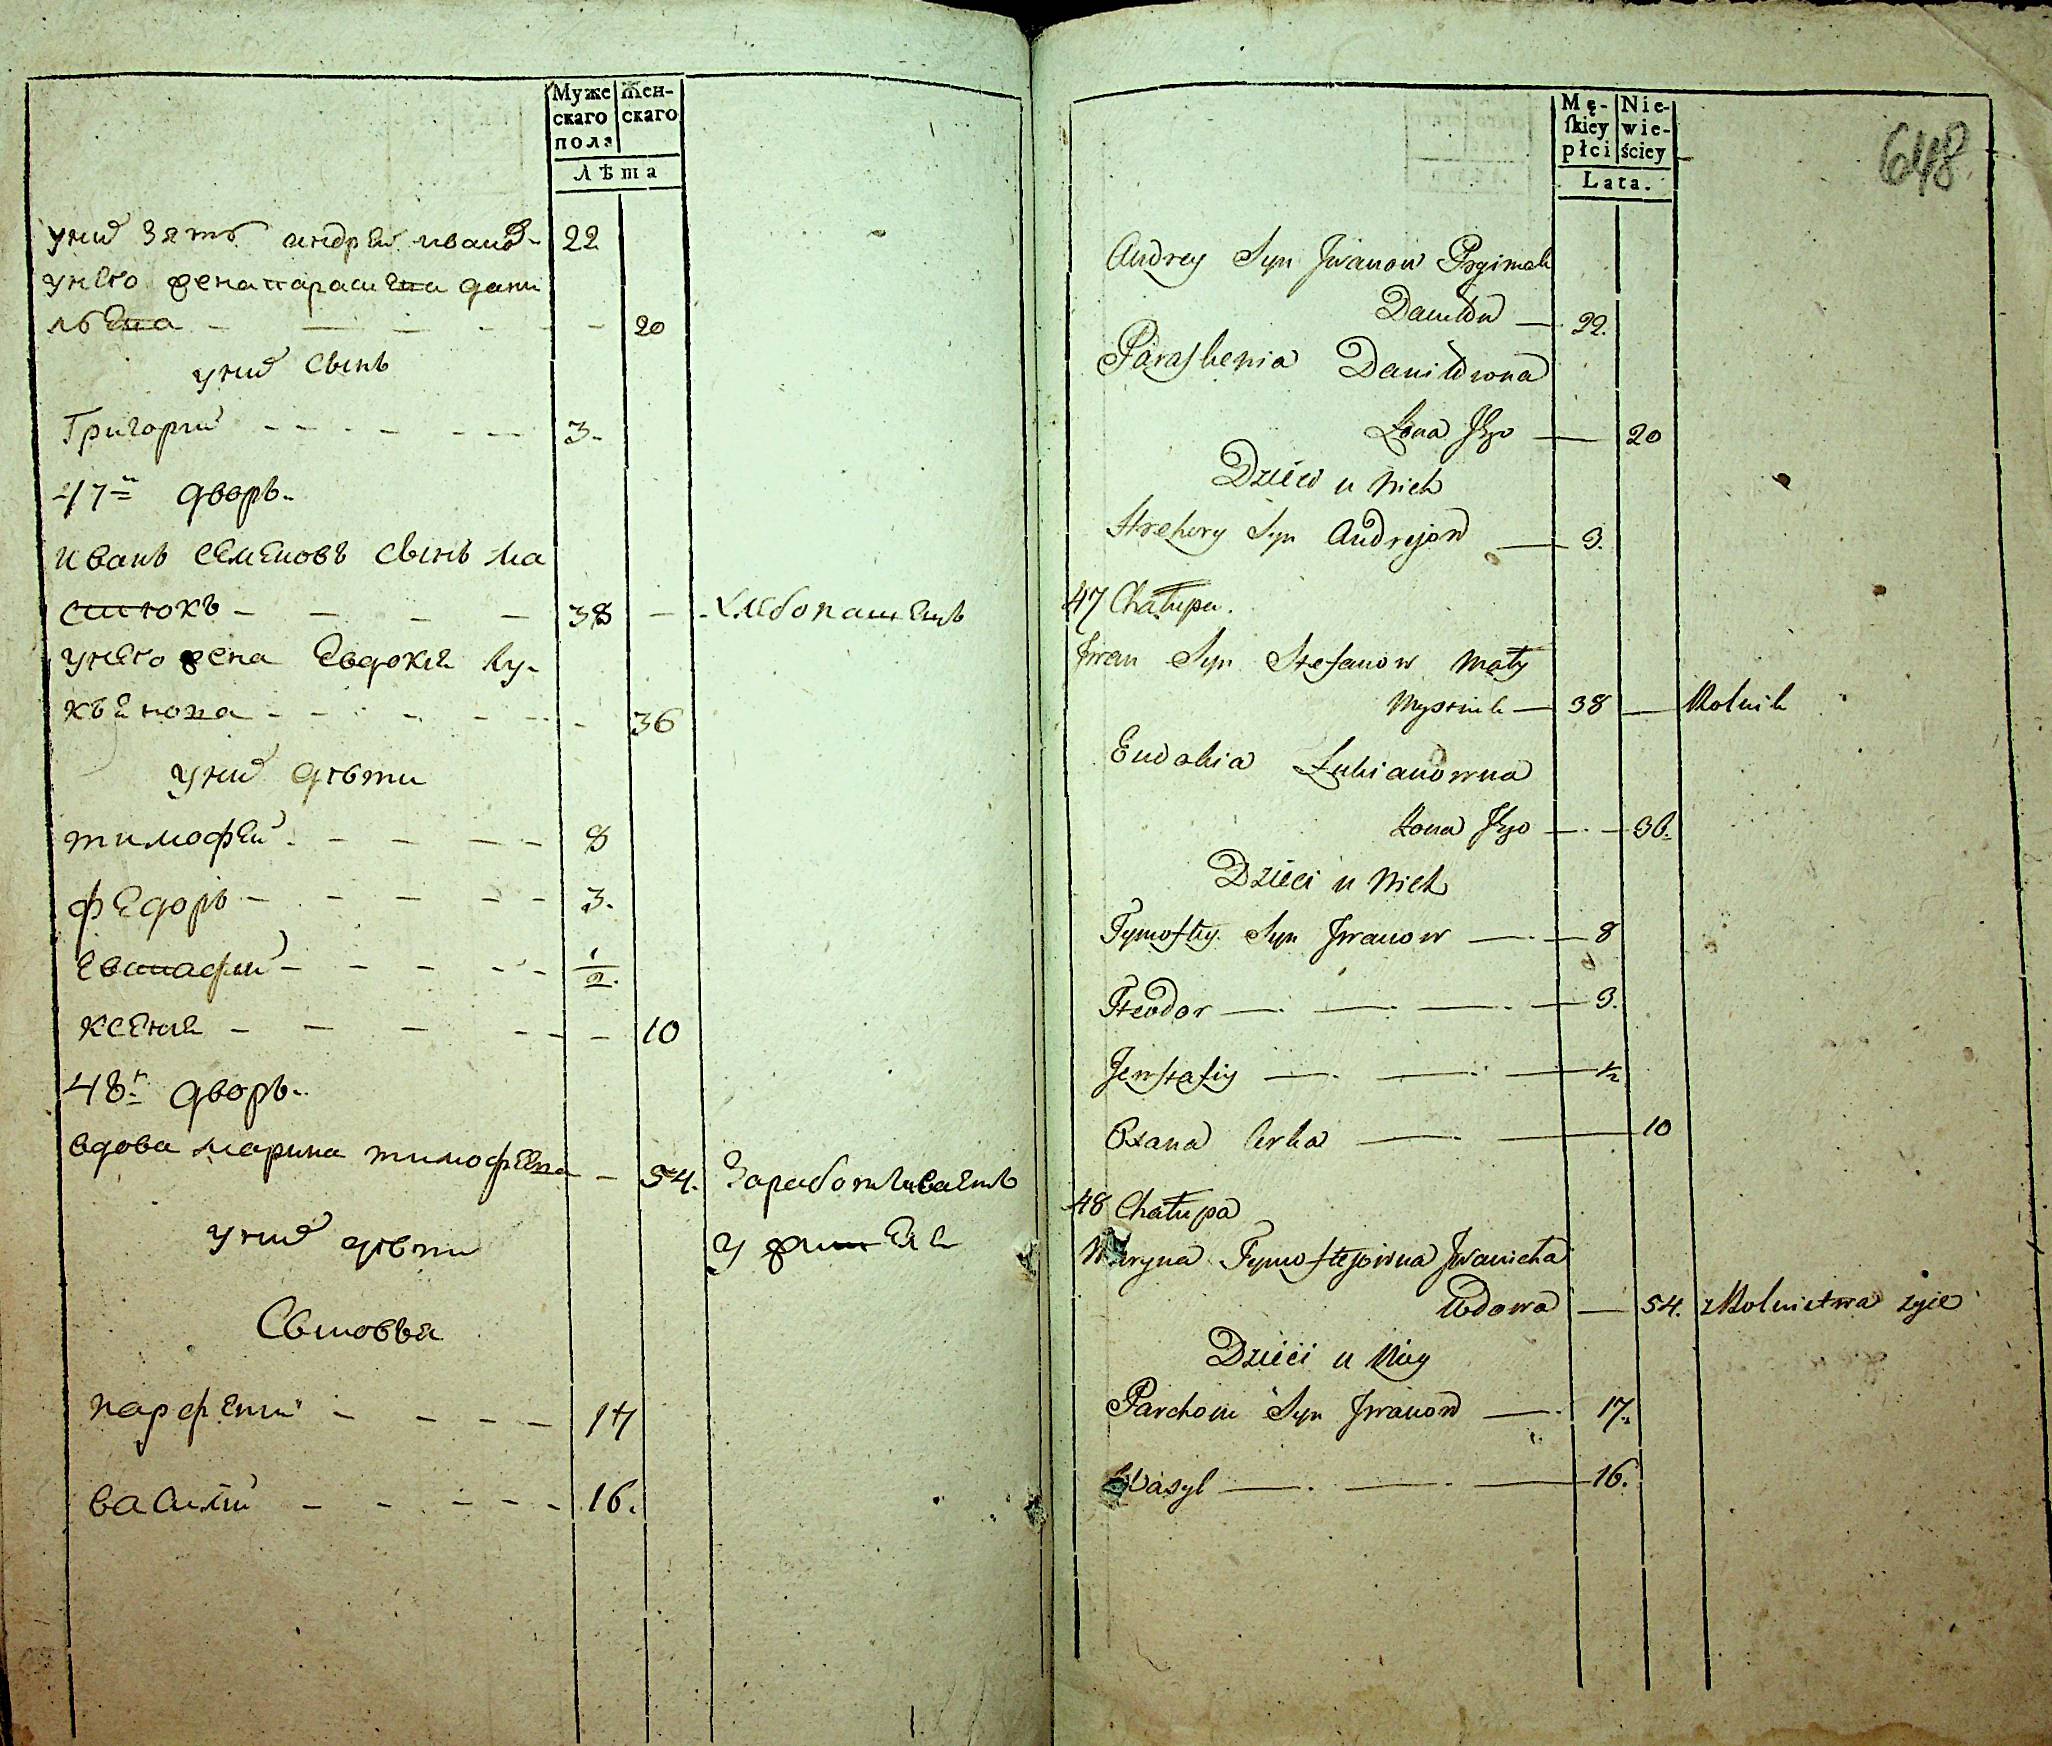 Муже
скаго
пола
Жен-
скаго
Лѣта
уних зять андрей иванов-
унего жена параскева дани
льева - 20
уних сынъ
Григорий - 3.
47й дворъ.
иванъ семеновъ сынъ ма
систокъ - 38 - хлебопашецъ
унего жена Евдокия лу-
кьянова - 36
уних дѣти
тимофей - 8
федоръ - 3.
евстафий - 1/2.
ксения - 10
48й дворъ.
вдова марина тимофеева - 54. Заработываетъ
уних дѣти
у жителей
Сыновья
парфений - 17
василий - 16.
648
Mę-
skiey
płci
Nie-
wie-
ściey
Lata.
Andrey Syn Jwanow Prgimak
Daniłów — 22.
Paraskewia Daniłówna
Żona Jego — 20
Dzieci u Nich
Hrehory Syn Andrejow — 3.
47 Chałupa.
Jwan Syn Stefanow Mały
38 — Rolnik
Eudokia Łukianowna
Żona Jego — 36.
Dzieci u Nich
Tymoftey Syn Jwanow — 8
Fteodor — 3.
Jewstafiy — 1/2
Oxana Corka — 10
48 Chałupa
Maryna Tymoftejowna Jwanicha
Wdowa — 54. z Rolnictwa żyie
Dzieci u Niey
Parchom Syn Jwanow — 17.
Wasyl — 16.